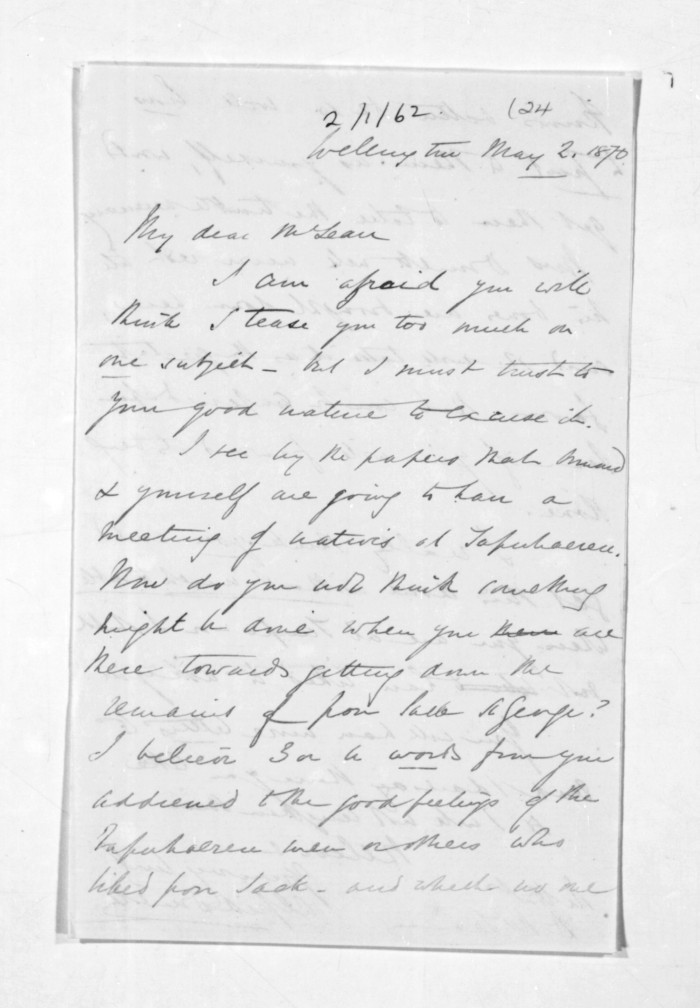 2/1/62. (24
Wellington May 2. 1870
My dear McLean
I am afraid you will
think I tease you too much on
one subject – but I must trust to
your good nature to excuse it.
I see by the papers that Ormond
& yourself are going to have a
meeting of natives at Tapuhaeren.
Now do you not think something
might be done when you them are
there towards getting down the
remains of poor Jack St George?
I believe 3 or 4 words from you
addressed to the good feelings of the
Tapuhaeren men or others who
liked poor Jack – and which no one